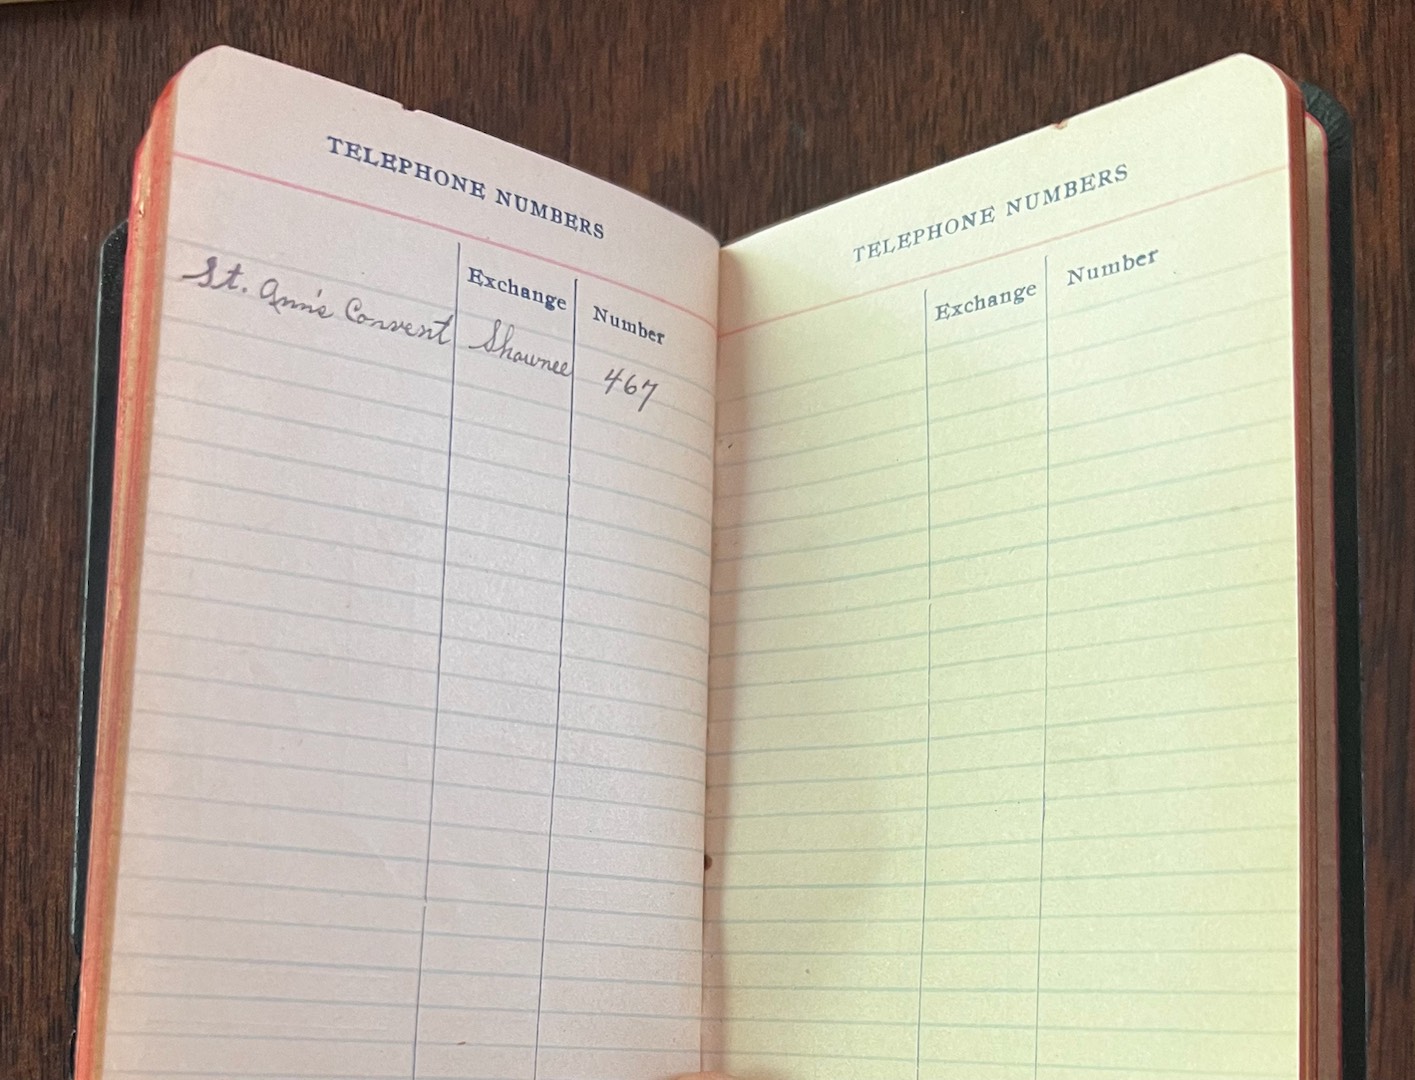 TELEPHONE NUMBERS
Exchange Number
St. Ann's Convent Shawnee 467
TELEPHONE NUMBERS
Exchange Number